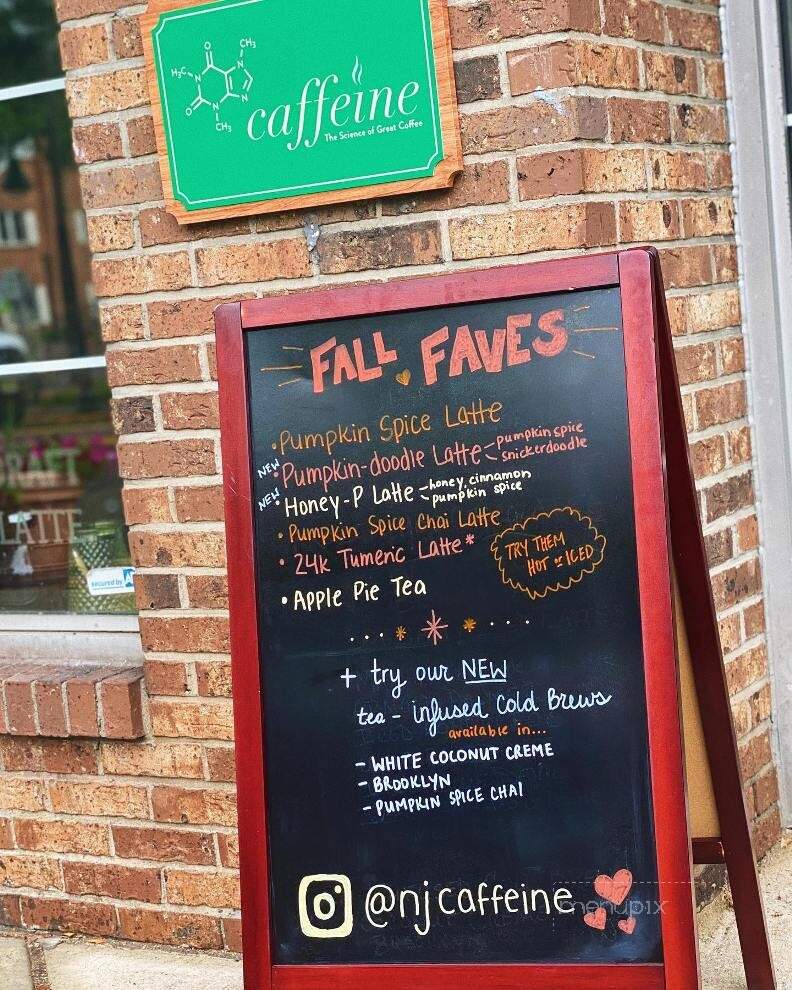 H₃C
O
CH₃
N
N
O
N
N
CH₃
caffeine
The Science of Great Coffee
FALL FAVES
• Pumpkin Spice Latte
NEW • Pumpkin-doodle Latte - pumpkin spice
snickerdoodle
NEW • Honey-P Latte - honey, cinnamon
pumpkin spice
• Pumpkin Spice Chai Latte
• 24k Tumeric Latte*
TRY THEM
HOT or ICED
• Apple Pie Tea
+ try our NEW
tea - infused Cold Brews
available in...
- WHITE COCONUT CREME
- BROOKLYN
- PUMPKIN SPICE CHAI
@njcaffeine
menupix
secured by
LATTE